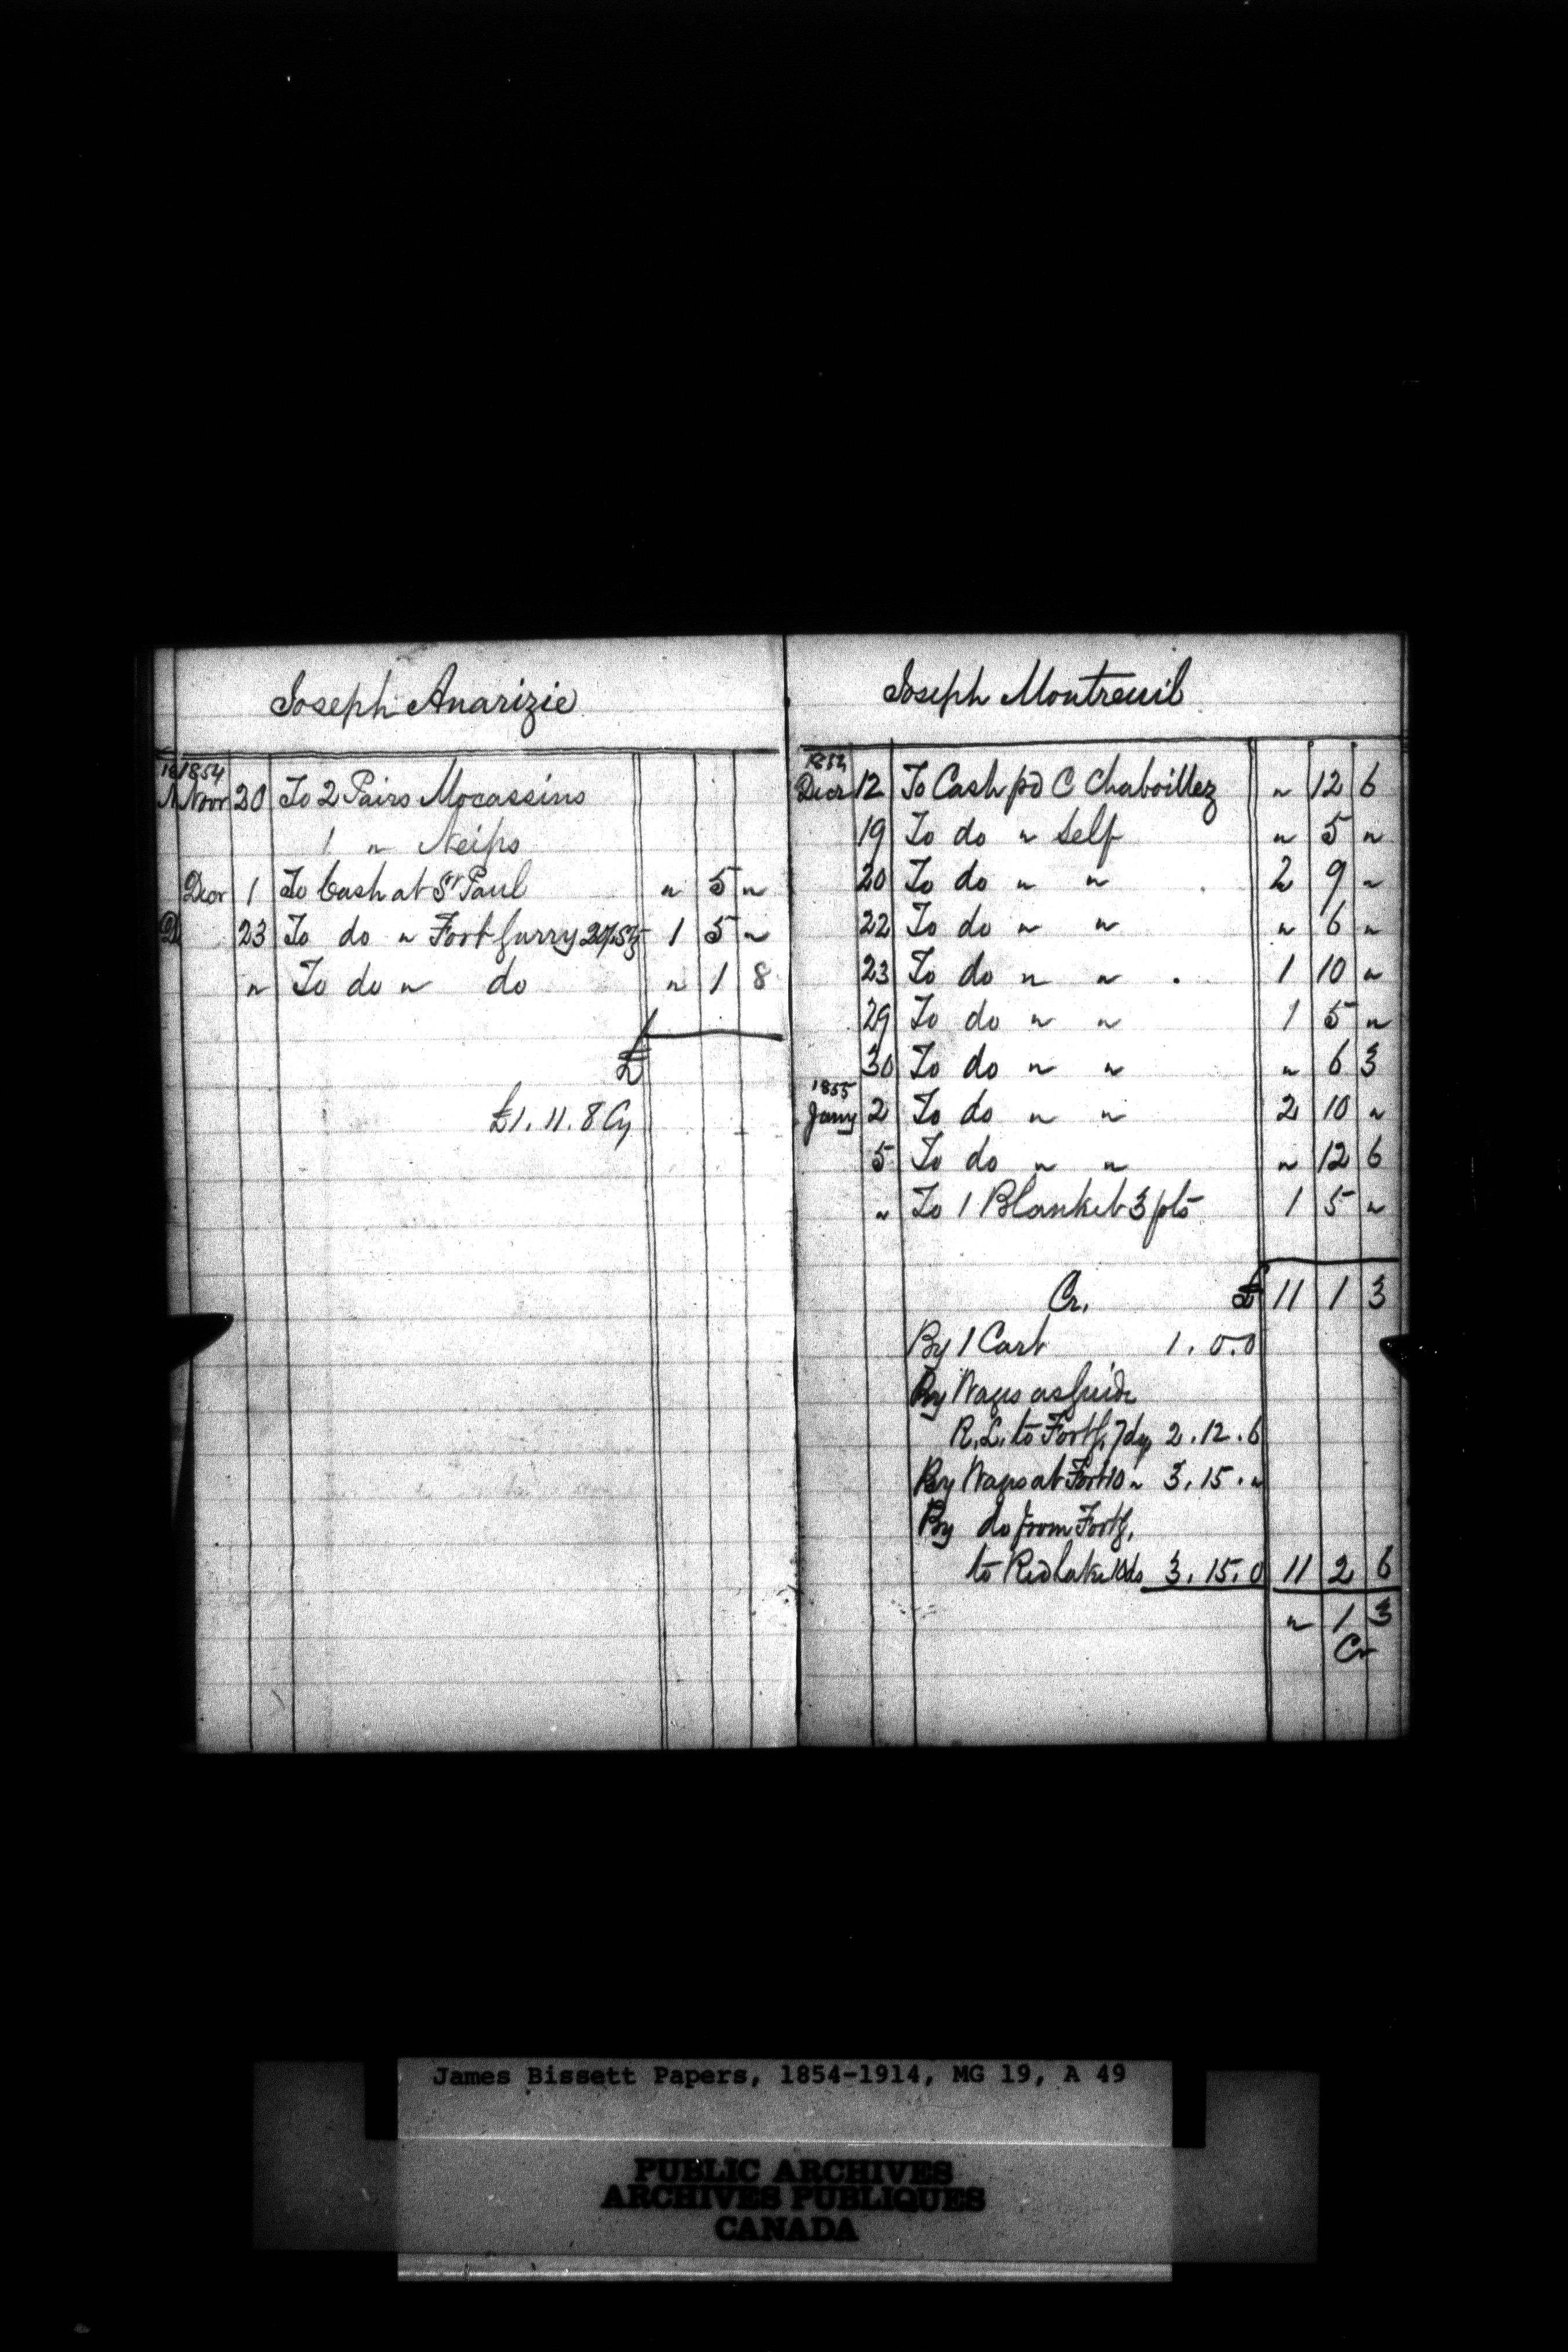 Joseph Anarizie
1854
Novr 20 To 2 Pairs Mocassins
1 " Neips
Decr 1 To Cash at St Paul " 5 "
23 To do " Fort Garry 1 5 "
" To do " do " 1 8
£
£1. 11. 8 Cy
Joseph Montreuil
1854
Decr 12 To Cash pd C Chaboillez " 12 6
19 To do " Self " 5 "
20 To do " " 2 9 "
22 To do " " " 6 "
23 To do " " 1 10 "
29 To do " " 1 5 "
30 To do " " " 6 3
1855
Jany 2 To do " " 2 10 "
5 To do " " " 12 6
" To 1 Blanket 3 pts 1 5 "
Cr. £ 11 1 3
By 1 Cart 1. 0. 0
By Wages as Guide
R. L. to Fort G. 7 dys 2. 12. 6
By Wages at Fort 10 " 3. 15. "
By do from Fort G.
to Red Lake 10 ds 3. 15. 0 11 2 6
" 1 3
Cr
James Bissett Papers, 1854-1914, MG 19, A 49
PUBLIC ARCHIVES
ARCHIVES PUBLIQUES
CANADA